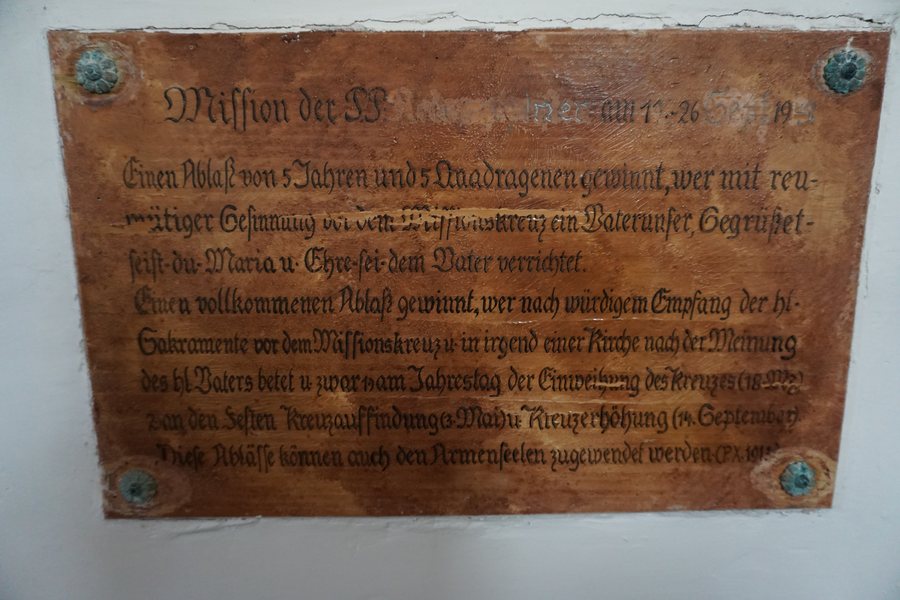 Mission der PP. am 17.-26 Sept. 19
Einen Ablaß von 5 Jahren und 5 Quadragenen gewinnt, wer mit reu-
mütiger Gesinnung vor dem Missionskreuz ein Vaterunser, Gegrüßet-
seist-du-Maria u. Ehre-sei-dem Vater verrichtet.
Einen vollkommenen Ablaß gewinnt, wer nach würdigem Empfang der hl.
Sakramente vor dem Missionskreuz u. in irgend einer Kirche nach der Meinung
des hl. Vaters betet u. zwar 1) am Jahrestag der Einweihung des Kreuzes (18.
2 an den Festen Kreuzauffindung (3. Mai) u. Kreuzerhöhung (14. September).
Diese Ablässe können auch den Armenseelen zugewendet werden. (P.X.